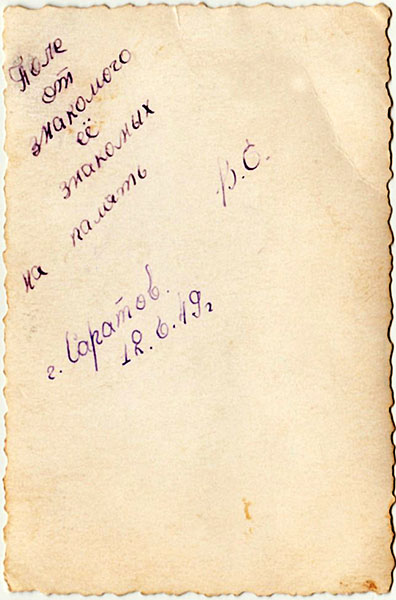 Поле
от
знакомого
её
знакомых
на память
В.С.
г. Саратов.
12.6.49г